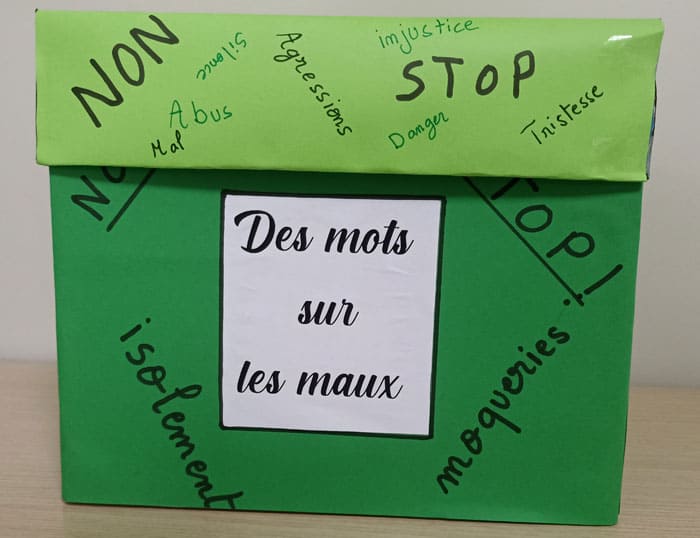 NON
silence
Agressions
injustice
STOP
Abus
Mal
Danger
Tristesse
NO
TOP!
Des mots
sur
les maux
isolement
moqueries